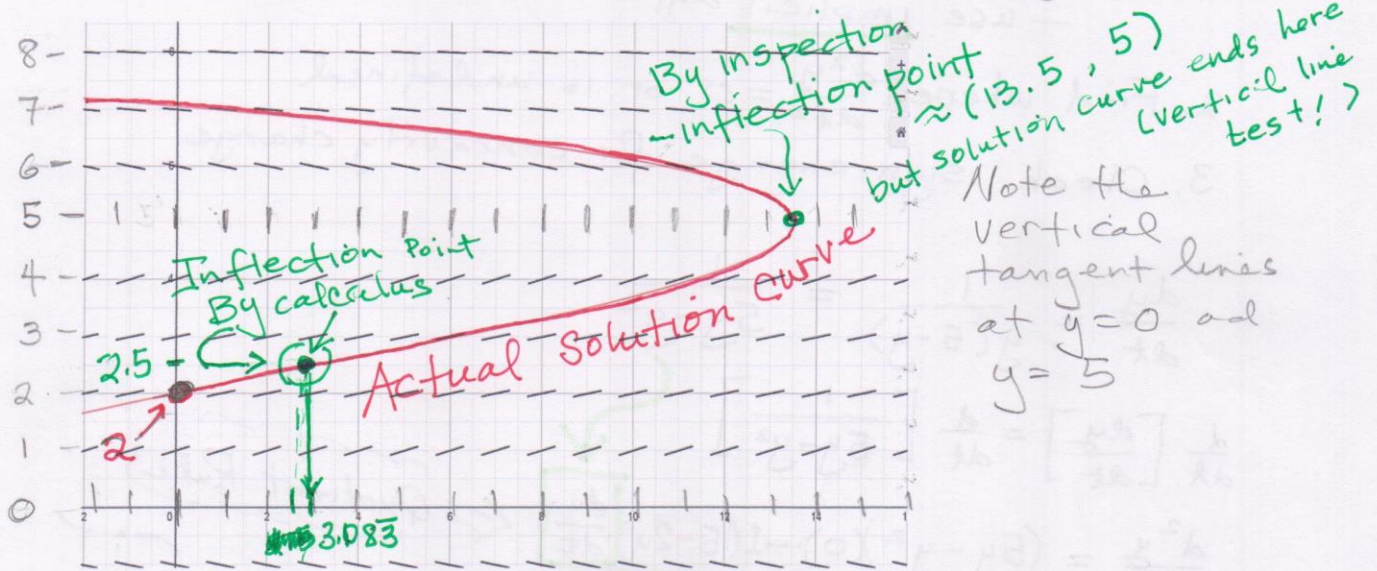 8
7
6
5
4
3
2.5
2
1
0
By inspection
- inflection point
≈ (13.5, 5)
but solution curve ends here
(vertical line
test!)
Note the
vertical
tangent lines
at y=0 ad
y = 5
Inflection Point
By calculus
Actual Solution curve
2
2 0 2 4 6 8 10 12 14 1
3.083̅